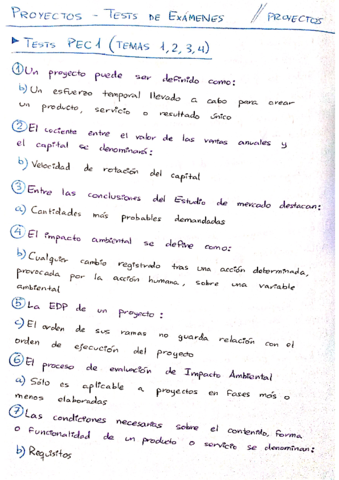 PROYECTOS - TESTS DE EXÁMENES // PROYECTOS
▶ TESTS PEC1 (TEMAS 1,2,3,4)
① Un proyecto puede ser definido como:
b) Un esfuerzo temporal llevado a cabo para crear
un producto, servicio o resultado único
② El cociente entre el valor de las ventas anuales y
el capital se denominará:
b) Velocidad de rotación del capital
③ Entre las conclusiones del Estudio de mercado destacan:
a) Cantidades más probables demandadas
④ El impacto ambiental se define como:
b) Cualquier cambio registrado tras una acción determinada,
provocada por la acción humana, sobre una variable
ambiental
⑤ La EDP de un proyecto:
c) El orden de sus ramas no guarda relación con el
orden de ejecución del proyecto
⑥ El proceso de evaluación de Impacto Ambiental
a) Sólo es aplicable a proyectos en fases más o
menos elaboradas
⑦ Las condiciones necesarias sobre el contenido, forma
o funcionalidad de un producto o servicio se denominan:
b) Requisitos